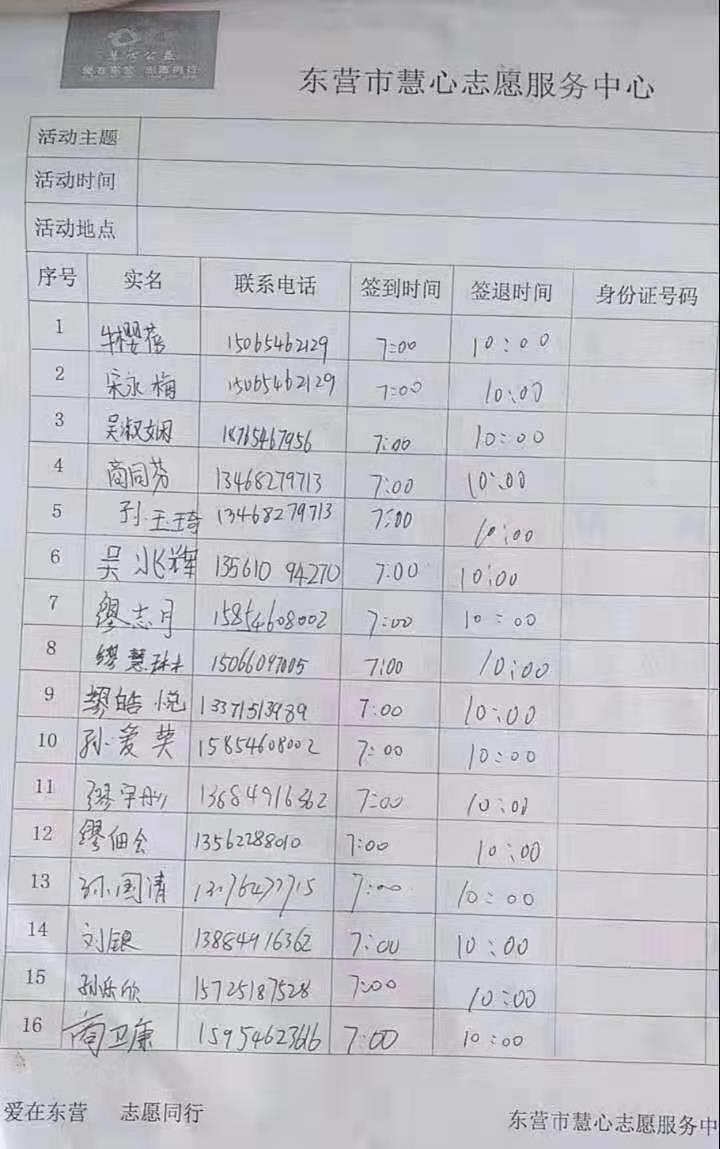 慧心公益
爱在东营 志愿同行
东营市慧心志愿服务中心
活动主题
活动时间
活动地点
序号 实名 联系电话 签到时间 签退时间 身份证号码
1 牛樱蓓 15065462129 7:00 10:00
2 宋永梅 15065462129 7:00 10:00
3 吴淑娴 18765467956 7:00 10:00
4 商同芬 13468279713 7:00 10:00
5 孙玉琦 13468279713 7:00 10:00
6 吴兆辉 13561094270 7:00 10:00
7 缪志月 15854608002 7:00 10:00
8 缪慧琳 15066097005 7:00 10:00
9 缪皓悦 13371513989 7:00 10:00
10 孙爱英 15854608002 7:00 10:00
11 缪宇彤 13884916362 7:00 10:00
12 缪佃会 13562288010 7:00 10:00
13 孙国清 7:00 10:00
14 刘银 13884916362 7:00 10:00
15 孙乐欣 15725187528 7:00 10:00
16 商卫康 15954623616 7:00 10:00
爱在东营 志愿同行 东营市慧心志愿服务中